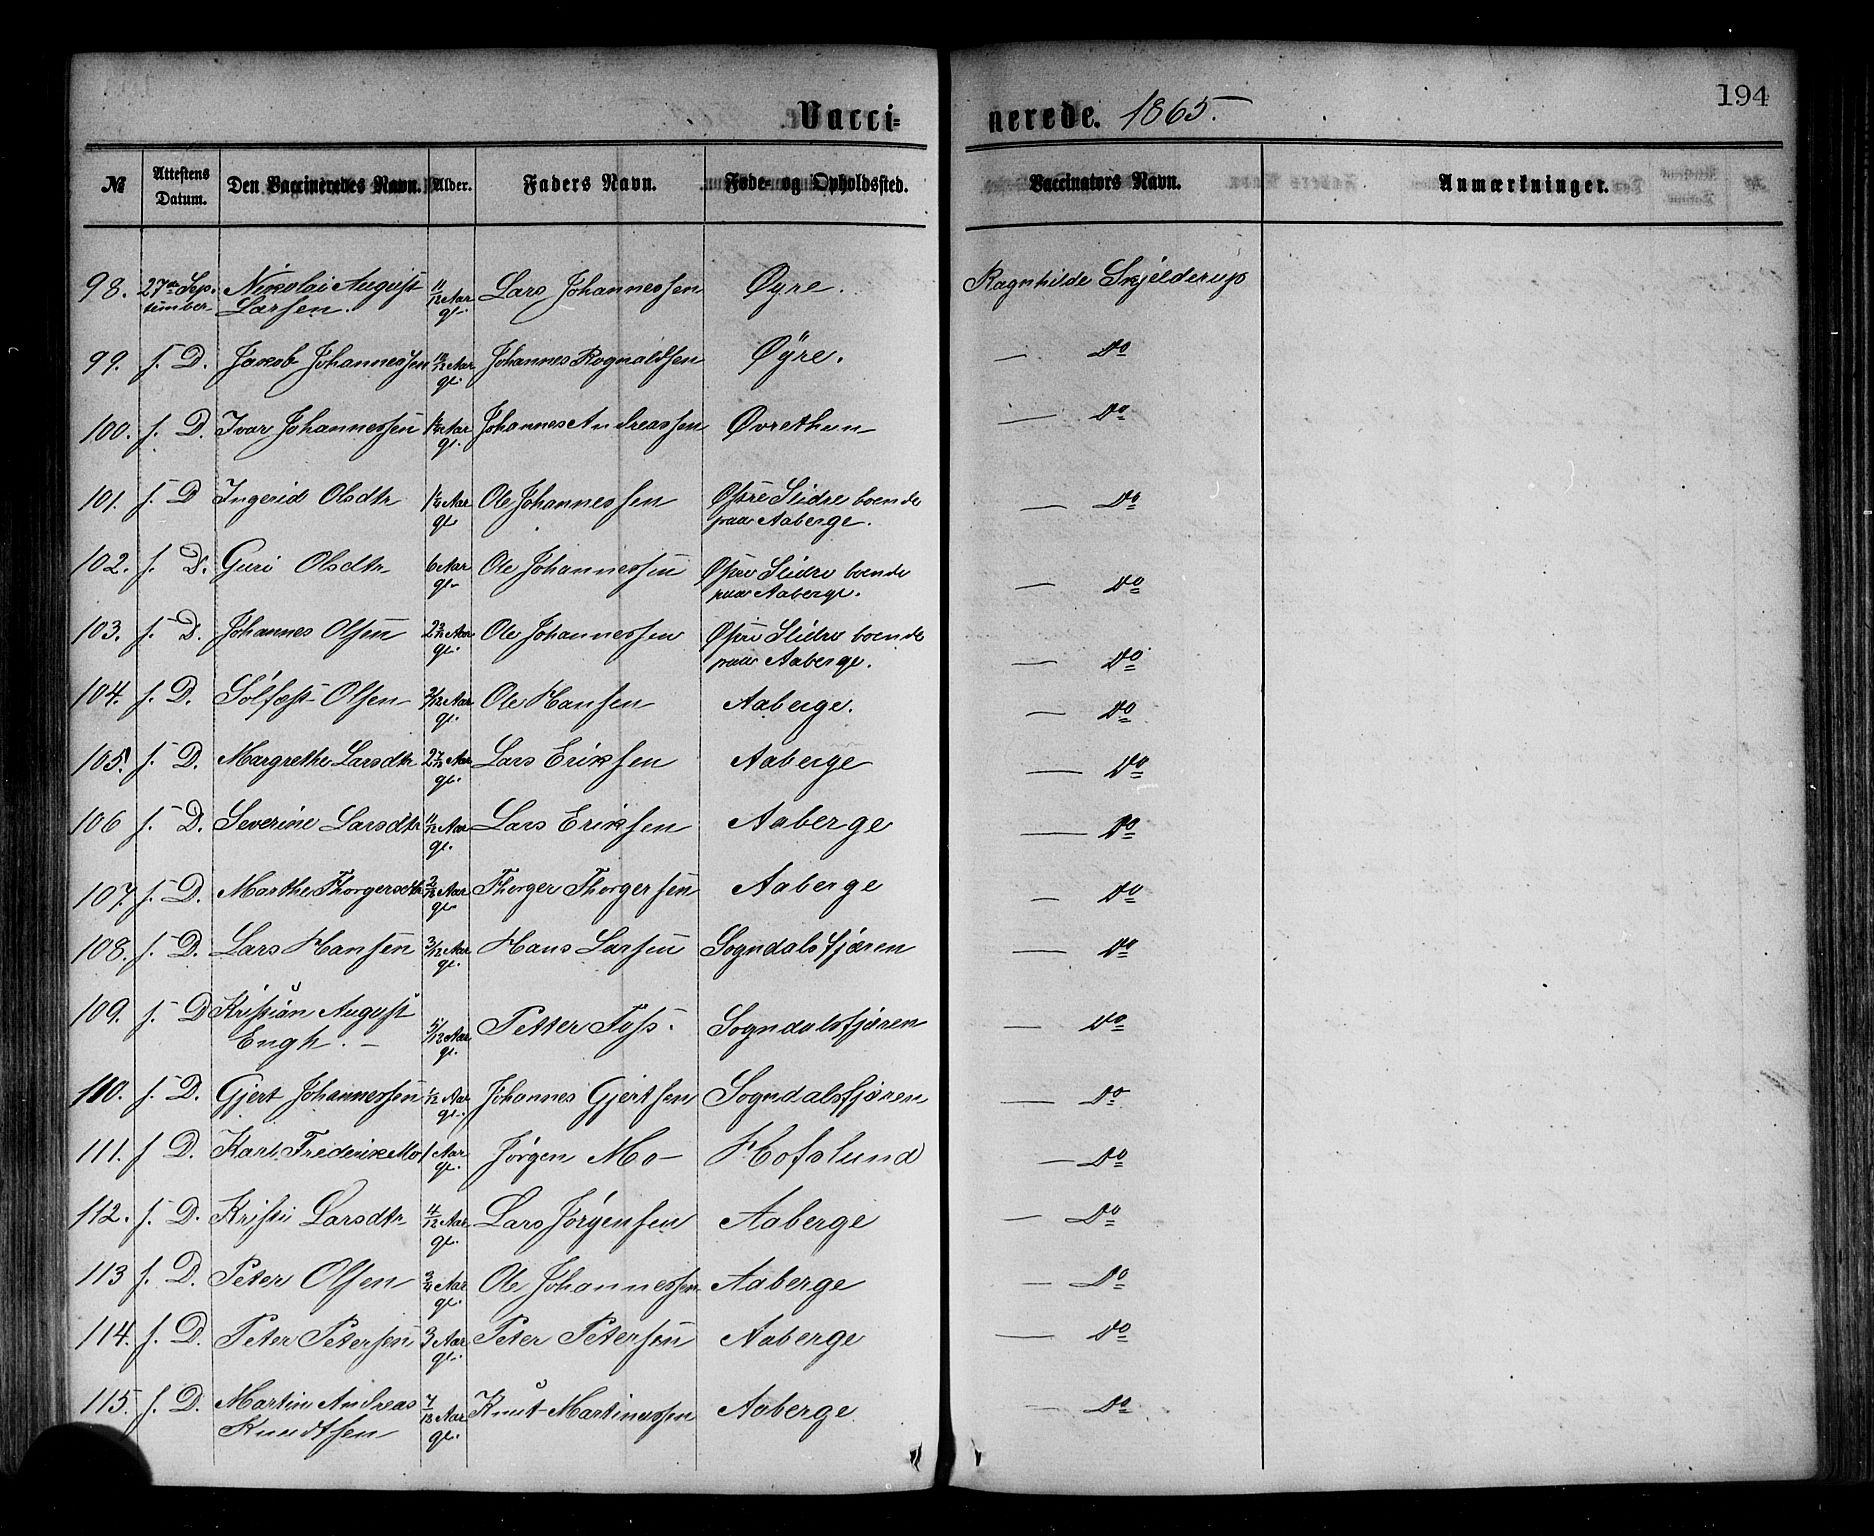 194
Vacci- nerede. 1865.
№ Attestens Datum. Den Vaccineredes Navn. Alder. Faders Navn. Føde- og Opholdssted. Vaccinators Navn. Anmærkninger.
98. 27de Sep- Nikolai August 11/12 Aar Lars Johannessen Øyre. Ragnhilde Skjelderup
tember Larsen. gl.
99. s. D. Jakob Johannessen 10/12 Aar Johannes Rognaldsen Øÿre. — Do
gl.
100. s. D. Ivar Johannessen Aar Johannes Andreassen Øvrethun — Do
gl.
101. s. D Ingerid Olsdtr Aar Ole Johannessen Østre Slidre boende — Do
gl paa Aaberge.
102. s. D. Guri Olsdtr 6 Aar Ole Johannessen Østre Slidre boende — Do
gl. paa Aaberge.
103. s. D. Johannes Olsen Aar Ole Johannessen Østre Slidre boende — Do
gl. paa Aaberge.
104. s. D. Sølfæst Olsen 3/12 Aar Ole Hansen Aaberge. — Do
gl.
105. s. D. Margrethe Larsdtr Aar Lars Eriksen Aaberge — Do
gl.
106 s. D. Severine Larsdtr 11/12 Aar Lars Eriksen Aaberge — Do
gl.
107. s. D. Marthe Thorgersdtr Aar Thorger Thorgersen Aaberge — Do
gl.
108. s. D. Lars Hansen 3/12 Aar Hans Larsen Sogndalsfjæren — Do
gl.
109. s. D Kristian August 5/12 Aar Petter Foss. Sogndalsfjæren — Do
Engh. — gl.
110. s. D. Gjert Johannessen Aar Johannes Gjertsen Sogndalsfjæren — Do
gl.
111. s D. Karl Frederik Mo 1 Aar Jørgen Mo Hofslund — Do
gl.
112. s. D. Kristi Larsdtr 4/12 Aar Lars Jørgensen Aaberge — Do
gl.
113 s. D. Peter Olsen 3/4 Aar Ole Johannessen Aaberge — Do
gl.
114. s. D. Peter Petersen 3 Aar Peter Petersen Aaberge — Do
gl.
115. s. D. Martin Andreas 7/12 Aar Knut Martinussen Aaberge — Do
Knudtsen gl.